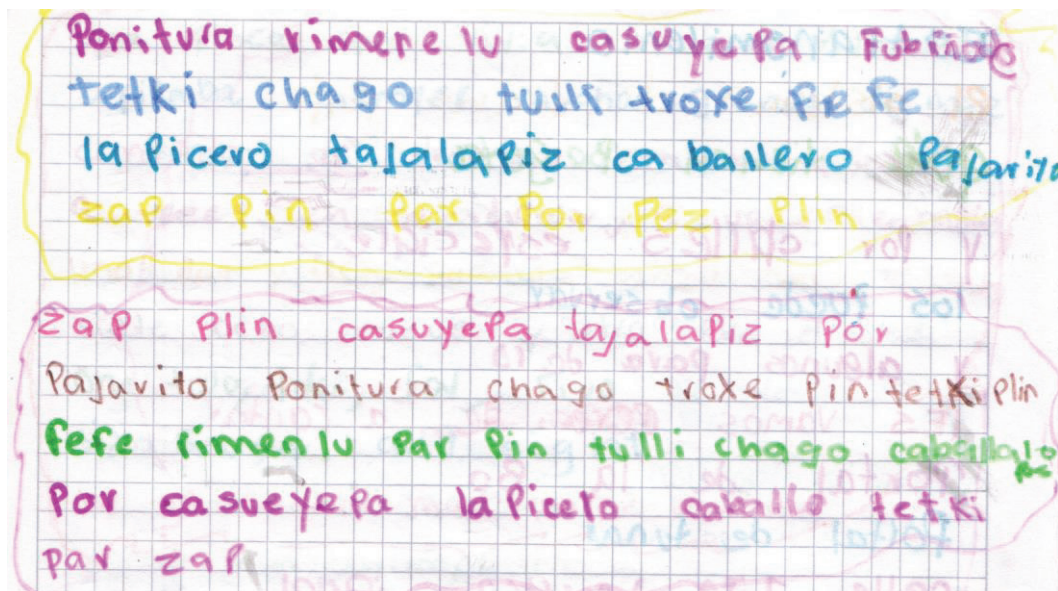 Ponitura rimenelu casuyepa Fubiñoe
tetki chago tulli troxe fe fe
la picero tajalapiz ca ballero Pajarito
zap pin par Por pez plin
zap plin casuyepa tajalapiz por
Pajarito Ponitura chago troxe pin tetki plin
fefe rimenlu par pin tulli chago
Por casueyepa la picero caballo tetki
par zap